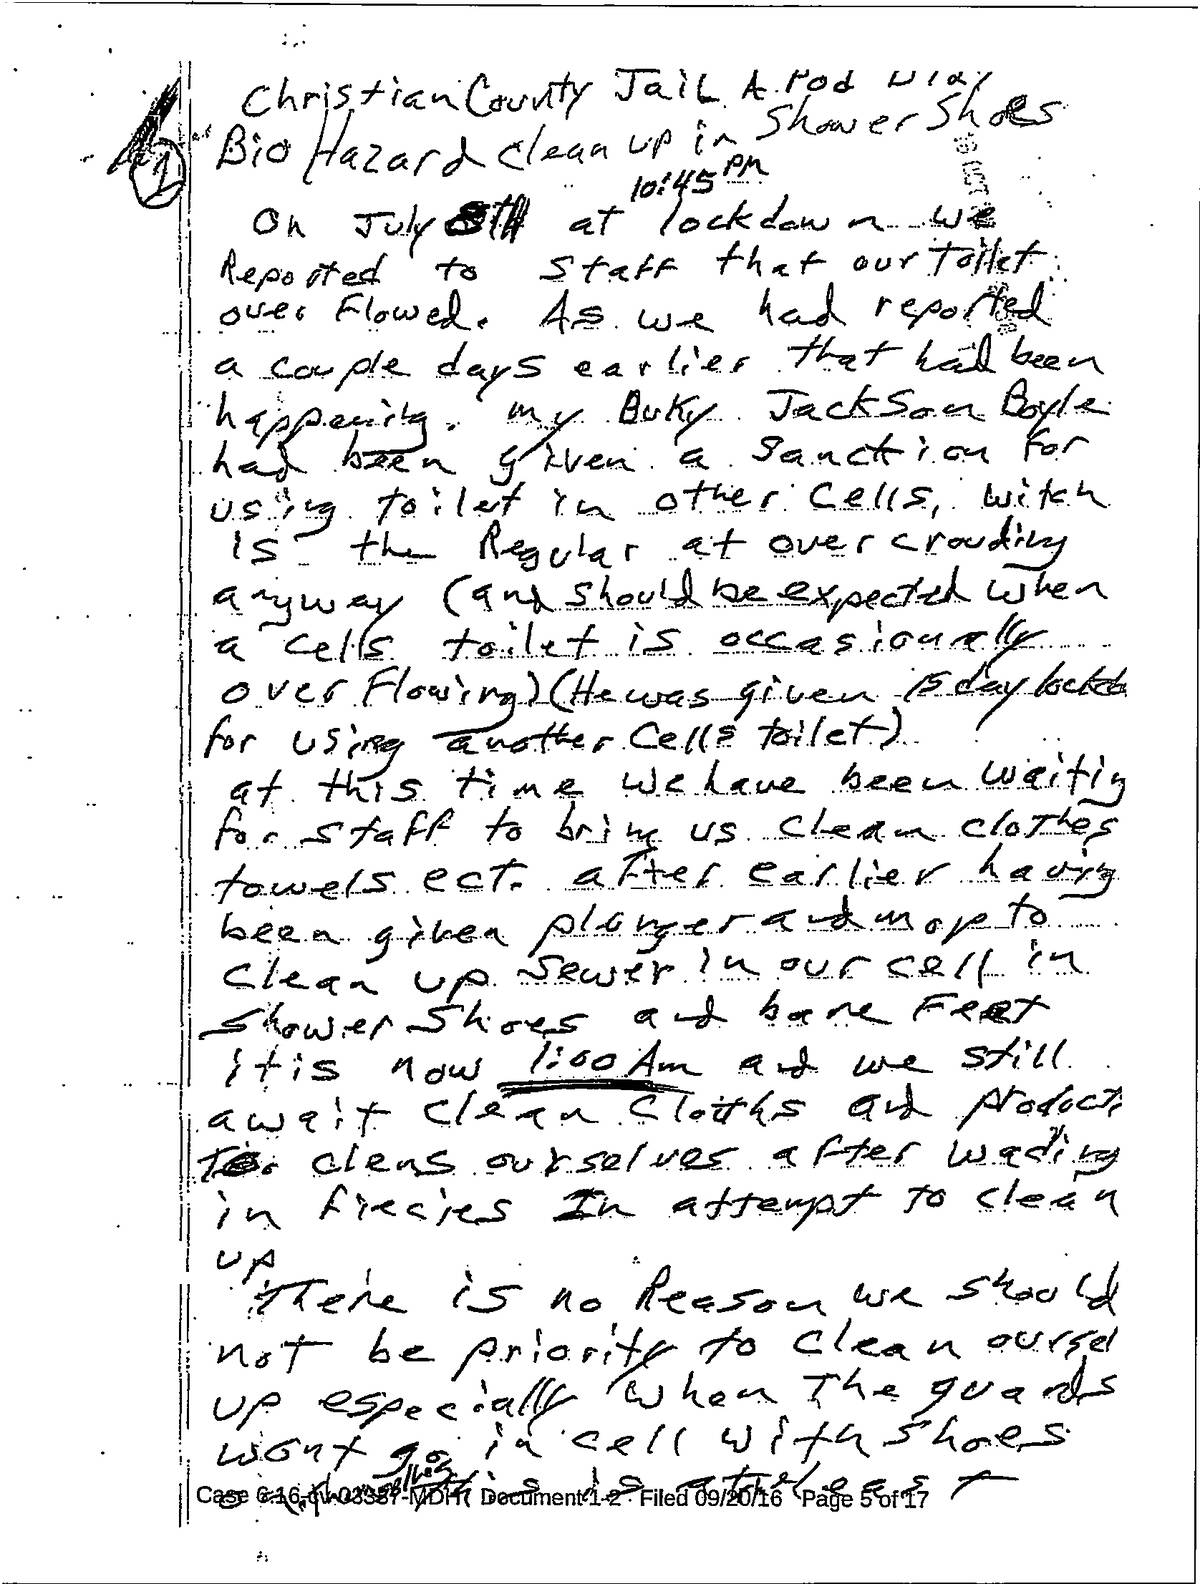 Christian County Jail A Pod
Bio Hazard clean up in Shower Shoes
1
10:45 PM
On July 8th at lockdown we
Reported to Staff that our toilet
over Flowed. As we had reported
a couple days earlier that had been
happening. my Bunky Jackson Boyle
had been given a Sanction for
using toilet in other Cells, witch
is the Regular at over crouding
anyway (and should be expected when
a cells toilet is occasionally
over Flowing) (He was given 15 day
for using another Cells toilet)
at this time we have been waiting
for staff to bring us clean clothes
towels ect. after earlier having
been given plunger and mop to
clean up sewer in our cell in
Shower Shoes and bare Feet
it is now 1:00 Am and we still
await clean Cloiths and product
To clens ourselves after wading
in fiecies In attempt to clean
up
There is no Reason we should
not be priority to clean oursel
up especially when The guards
wont go in cell with shoes
this is at least
Case 6:16-cv-03387-MDH Document 1-2 Filed 09/20/16 Page 5 of 17